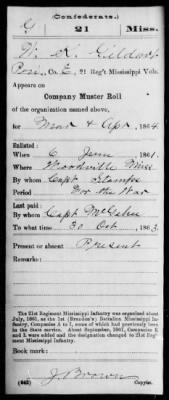 (Confederate.)
G 21 Miss.
W. K. Gildart
Priv., Co. E, 21 Reg't Mississippi Vols.
Appears on
Company Muster Roll
of the organization named above,
for Mar & Apr, 1864.
Enlisted:
When 6 June, 1861.
Where Woodville Miss
By whom Capt Stamps
Period For the War
Last paid:
By whom Capt McGehee
To what time 30 Oct, 1863.
Present or absent Present
Remarks:
The 21st Regiment Mississippi Infantry was organized about
July, 1861, as the 1st (Brandon's) Battalion Mississippi In-
fantry, Companies A to I, some of which had previously been
in the State service. About September, 1861, Companies K
and L were added and the designation changed to 21st Reg-
iment Mississippi Infantry.
Book mark:
J. Brown
(642) Copyist.